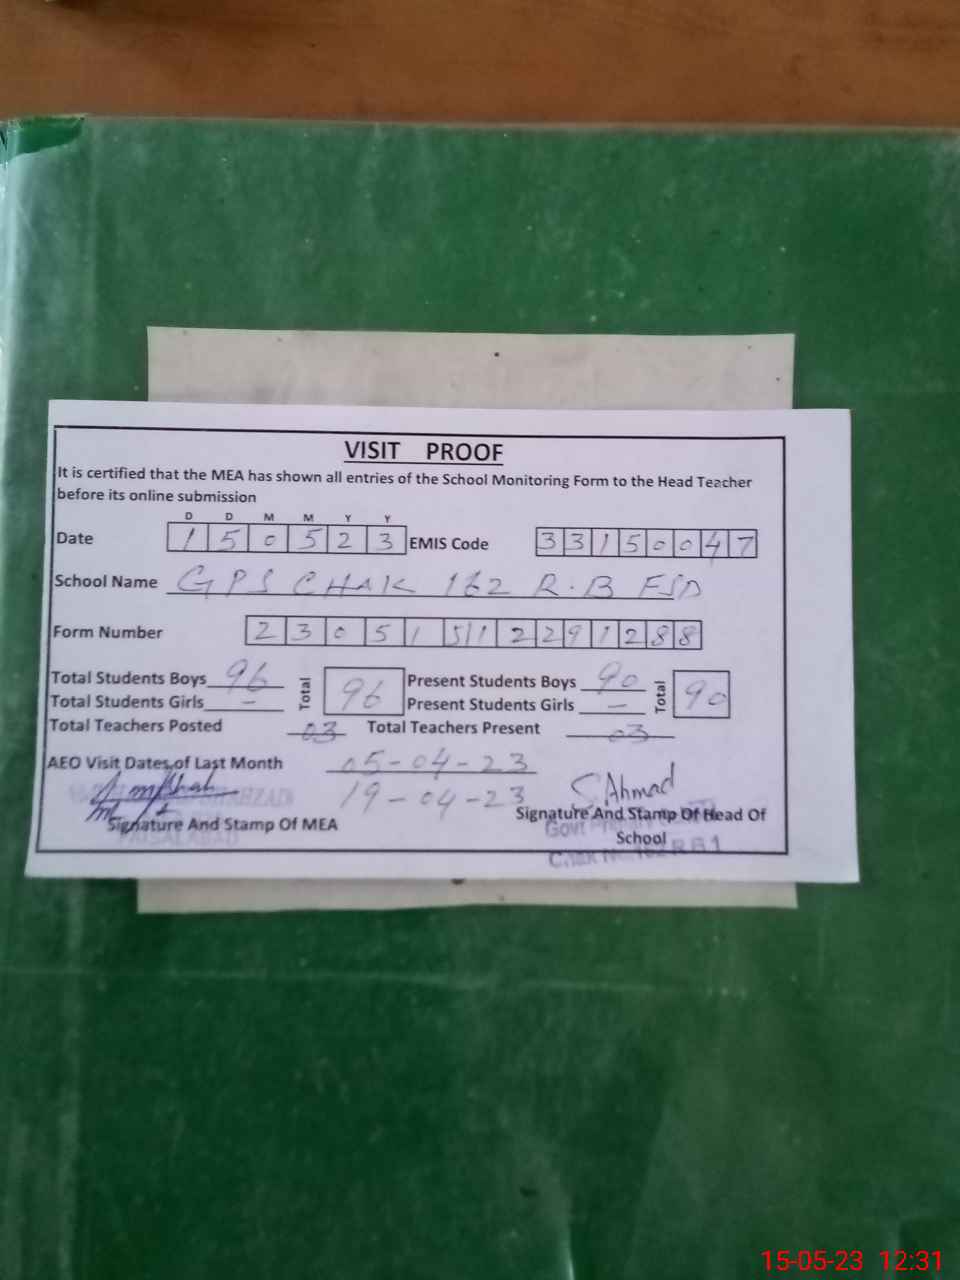 VISIT PROOF
It is certified that the MEA has shown all entries of the School Monitoring Form to the Head Teacher
before its online submission
D D M M Y Y
Date 1 5 0 5 2 3 EMIS Code 3 3 1 5 0 0 4 7
School Name GPS CHAK 162 R.B FSD
Form Number 2 3 0 5 1 5 1 2 2 9 1 2 8 8
Total Students Boys 96 Total 96 Present Students Boys 90 Total 90
Total Students Girls - Present Students Girls -
Total Teachers Posted 03 Total Teachers Present 03
AEO Visit Dates of Last Month 05-04-23
19-04-23
SAhmad
SHAHZAD
Signature And Stamp Of MEA
FAISALABAD
Signature And Stamp Of Head Of
School
Govt Primary
Chak No. 162 R B 1
15-05-23 12:31